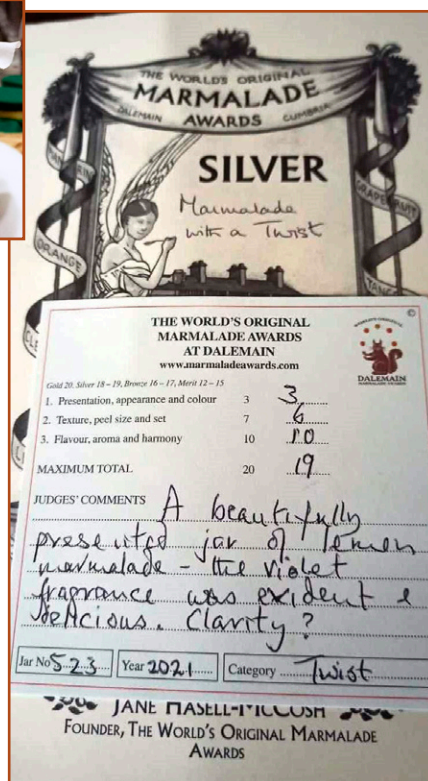 THE WORLD'S ORIGINAL
MARMALADE
DALEMAIN AWARDS CUMBRIA
SILVER
Marmalade
with a Twist
GRAPEFRUIT
ORANGE
THE WORLD'S ORIGINAL
MARMALADE AWARDS
AT DALEMAIN
www.marmaladeawards.com
DALEMAIN
MARMALADE AWARDS
Gold 20, Silver 18 – 19, Bronze 16 – 17, Merit 12 – 15
1. Presentation, appearance and colour 3 3
2. Texture, peel size and set 7 6
3. Flavour, aroma and harmony 10 10
MAXIMUM TOTAL 20 19
JUDGES' COMMENTS A beautifully
presented jar of lemon
marmalade - the violet
fragrance was evident &
delicious. Clarity?
Jar No 523 Year 2021 Category Twist
JANE HASELL-MCCOSH
FOUNDER, THE WORLD'S ORIGINAL MARMALADE
AWARDS